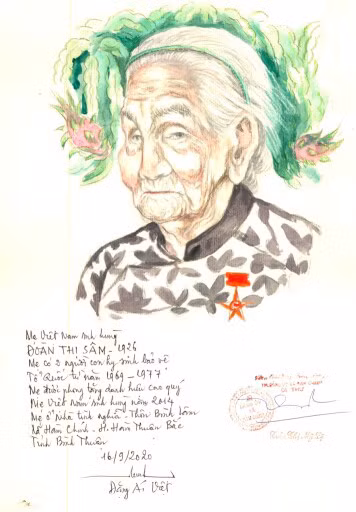 Mẹ Việt Nam anh hùng
ĐOÀN THỊ SÂM - 1926
Mẹ có 2 người con hy sinh bảo vệ
Tổ Quốc từ năm 1969 - 1977
Mẹ được phong tặng danh hiệu cao quý
Mẹ Việt Nam anh hùng năm 2014
Mẹ ở Nhà tình nghĩa - Thôn Bình Lâm
Xã Hàm Chính - H. Hàm Thuận Bắc
Tỉnh Bình Thuận
16/9/2020
Đặng Ái Việt